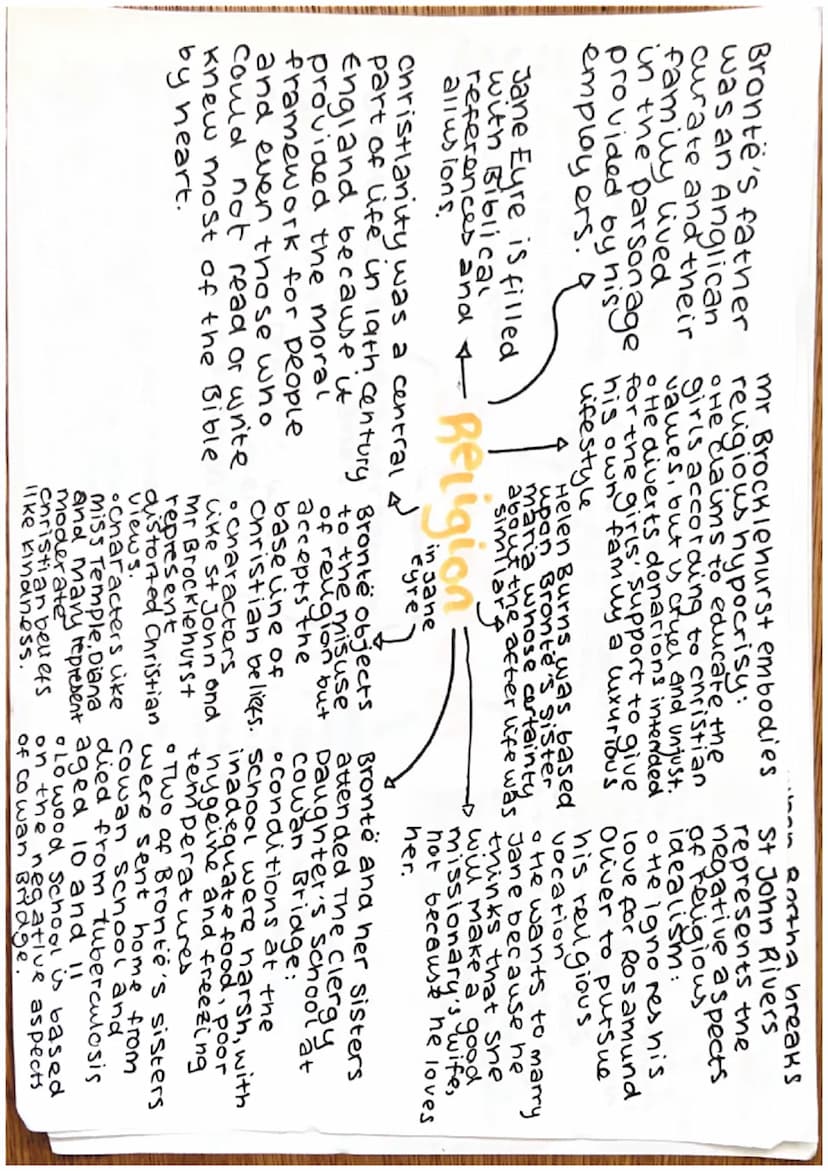 Bertha breaks
Brontë's father
was an Anglican
curate and their
family lived
in the parsonage
provided by his
employers.
Mr Brocklehurst embodies
religious hypocrisy:
He claims to educate the
girls according to christian
values, but is cruel and unjust.
He diverts donations intended
for the girls' support to give
his own family a luxurious
lifestyle
St John Rivers
represents the
negative aspects
of religious
idealism:
He ignores his
love for Rosamund
Oliver to pursue
his religious
vocation
He wants to marry
Jane because he
thinks that she
will make a good
missionary's wife,
not because he loves
her.
Jane Eyre is filled
with Biblical
references and
allusions.
Helen Burns was based
upon Brontë's sister
Maria whose certainty
about the after life was
similar
Religion
in Jane
Eyre
christianity was a central
part of life in 19th century
England because it
provided the moral
framework for people
and even those who
could not read or write
knew most of the Bible
by heart.
Brontë objects
to the misuse
of religion but
accepts the
base line of
Christian beliefs.
characters
like St John and
Mr Brocklehurst
represent
distorted Christian
views.
characters like
Miss Temple, Diana
and Mary represent
moderate
christian beliefs
like kindness.
Brontë and her sisters
attended the Clergy
Daughter's School at
Cowan Bridge:
conditions at the
school were harsh, with
inadequate food, poor
hygeine and freezing
temperatures
Two of Brontë's sisters
were sent home from
Cowan School and
died from tuberculosis
aged 10 and 11
Lowood School is based
on the negative aspects
of Cowan Bridge.